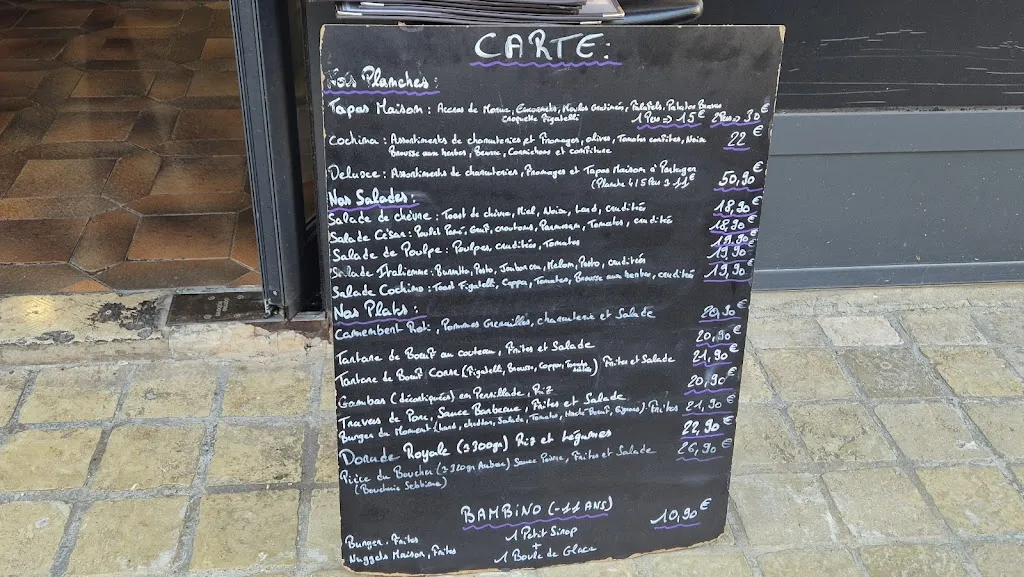 CARTE:
Nos Planches:
Tapas Maison: Accras de Morue, Encornets, Moules Gratinées, Falafels, Patatas Bravas
Croquette Figatelli 1 Pers => 15€ 2 Pers => 30€
Cochina: Assortiments de charcuteries et Fromages, olives, Tomates confites, Noix 22€
Brousse aux herbes, Beurre, Cornichons et confiture
Deluxe: Assortiments de charcuteries, Fromages et Tapas Maison à Partager 50,90€
(Planche 4/5 Pers
Nos Salades:
Salade de chèvre: Toast de chèvre, Miel, Noix, Lard, crudités 18,90€
Salade César: Poulet Pané, Œuf, croutons, Parmesan, Tomates, crudités 18,90€
Salade de Poulpe: Poulpes, crudités, Tomates 19,90€
Salade Italienne: Burratta, Pesto, Jambon cru, Melon, crudités 19,90€
Salade Cochina: Toast Figatelli, Coppa, Tomates, Brousse aux herbes, crudités 19,90€
Nos Plats:
Camembert Roti, Pommes Grenailles, charcuterie et Salade 20,90€
Tartare de Bœuf au couteau, Frites et Salade 20,90€
Tartare de Bœuf Corse (Figatelli, Brousse, Coppa, Tomate séchée) Frites et Salade 21,90€
Gambas (décortiquées) en Persillade, Riz 20,90€
Travers de Porc, Sauce Barbecue, Frites et Salade
Burger du Moment (Lard, cheddar, Salade, Tomate, Haché Bœuf, Oignons) Frites 21,90€
Dorade Royale (±300gr) Riz et Légumes 22,90€
Pièce du Boucher (±320gr Aubrac) Sauce Poivre, Frites et Salade 26,90€
(Boucherie
BAMBINO (-11 ANS) 10,90€
Burger, Frites 1 Petit Sirop
+
Nuggets Maison, Frites 1 Boule de Glace